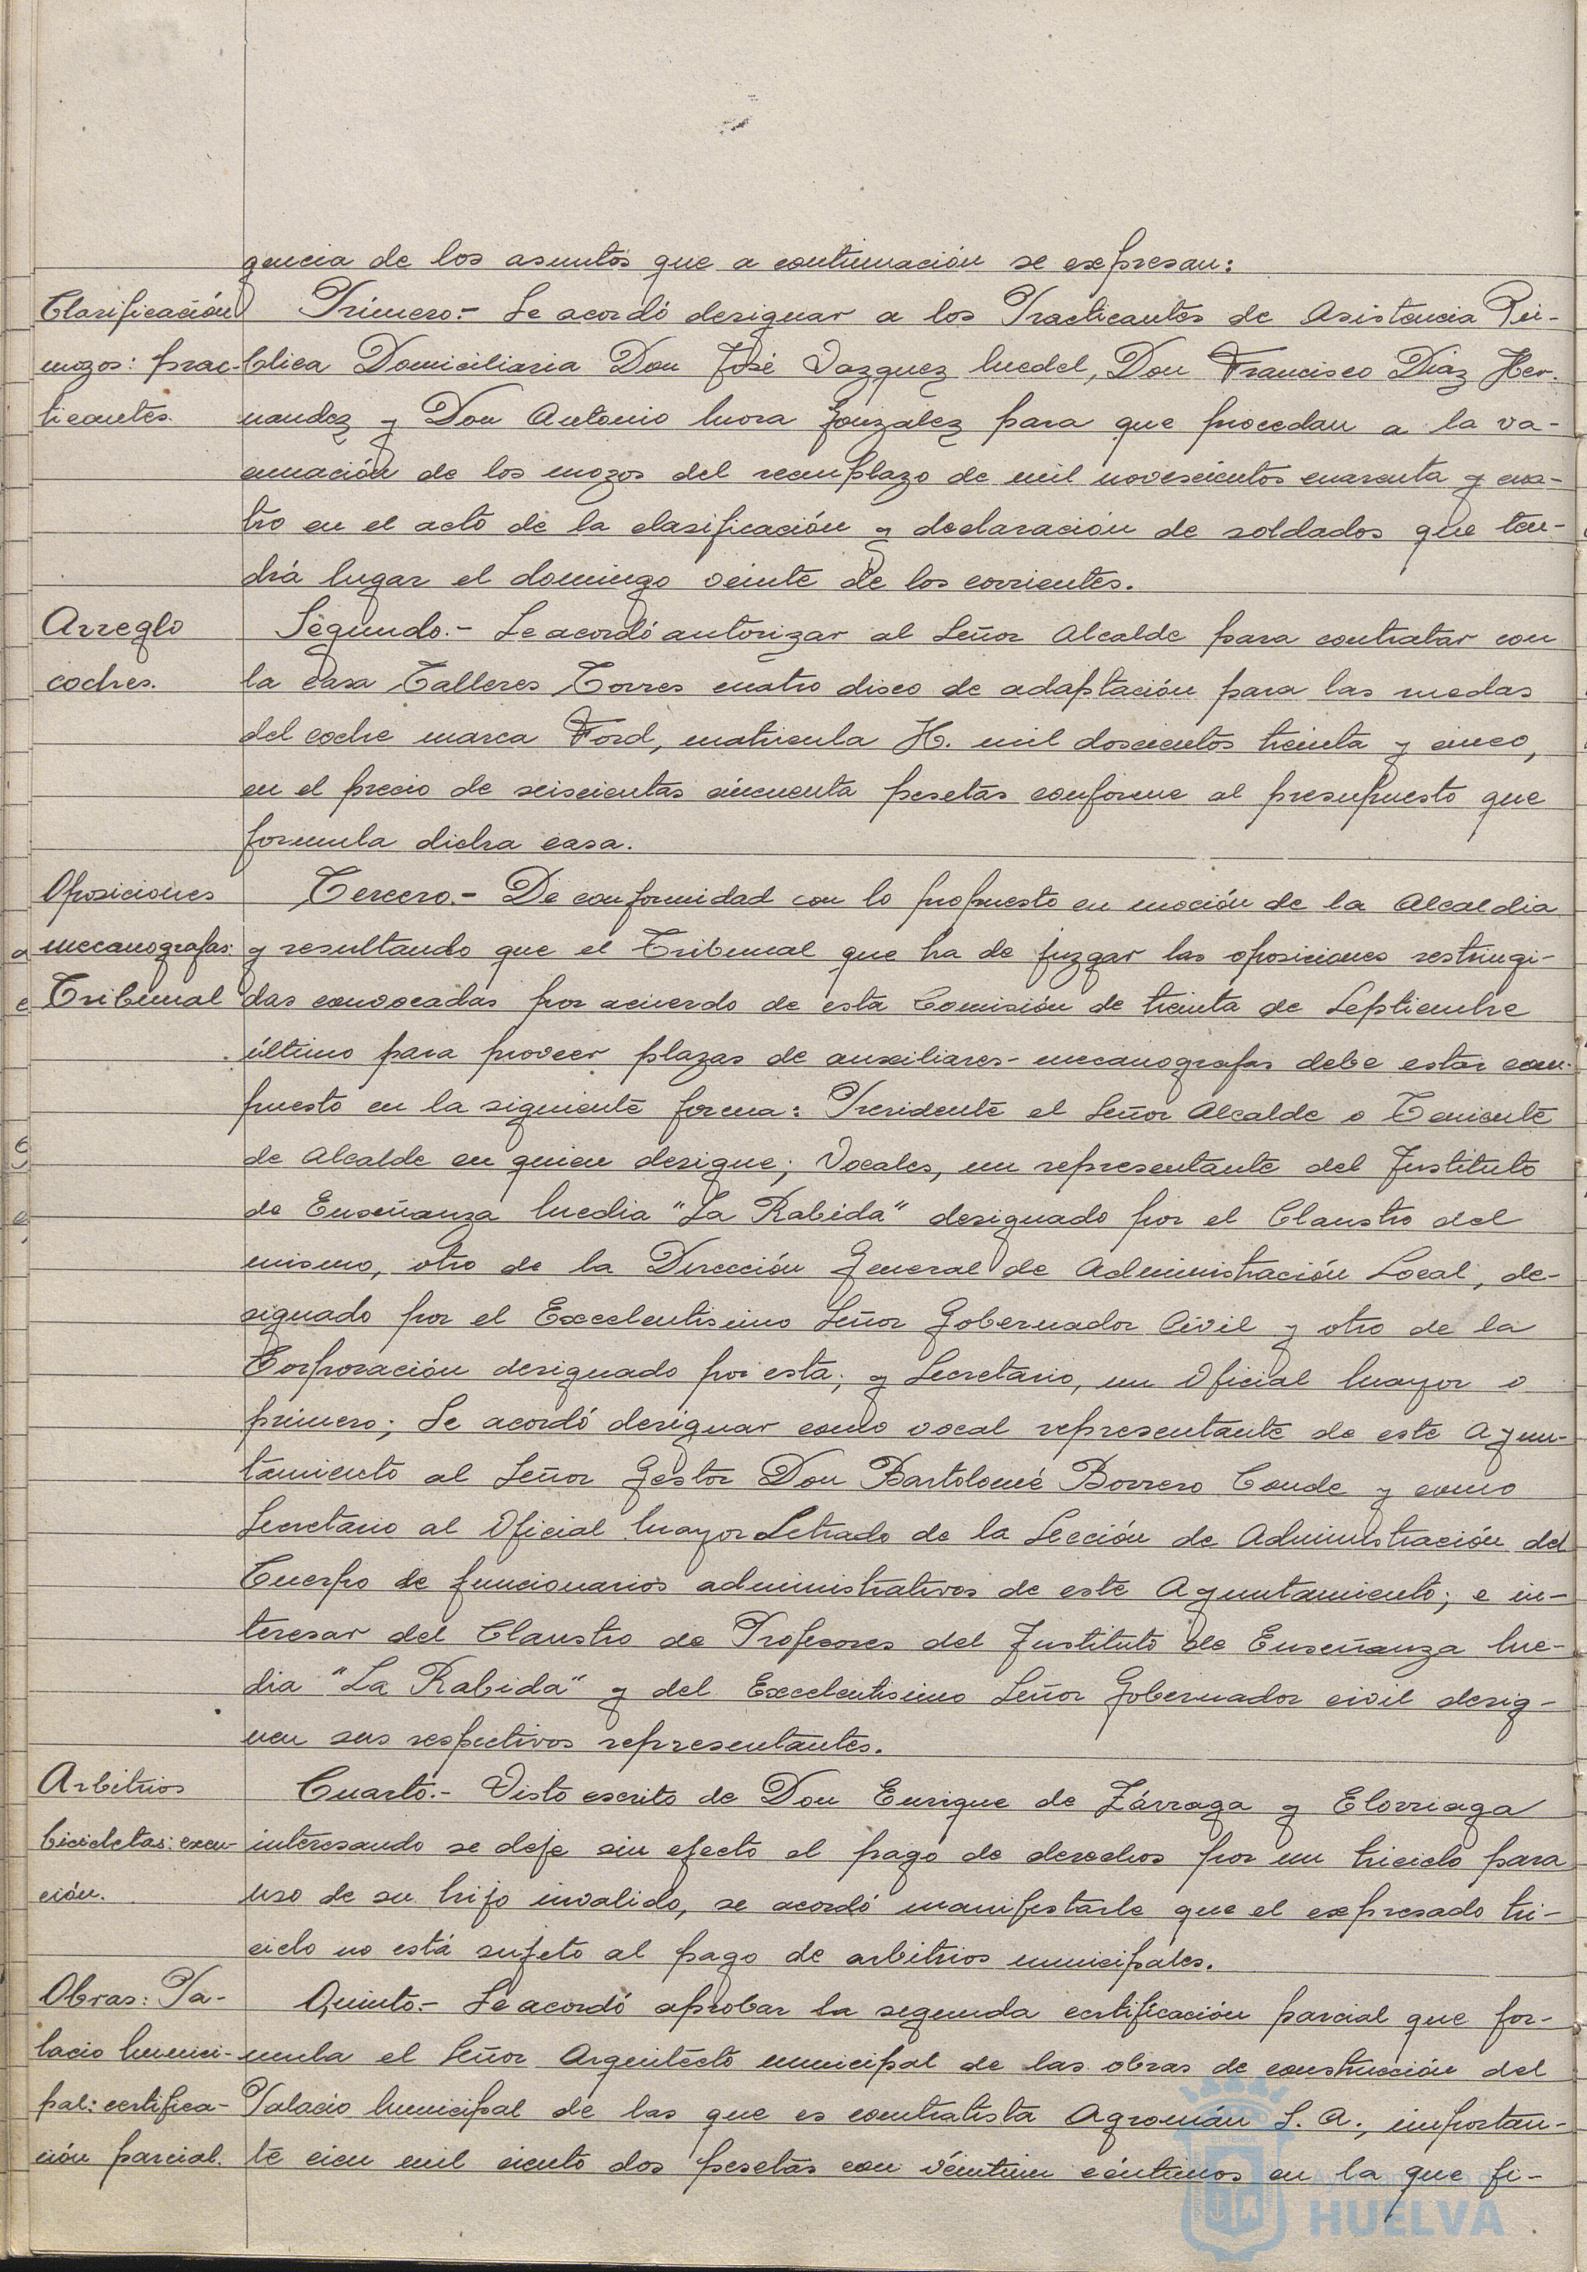 gencia de los asuntos que a continuación se expresan:
Clasificación
mozos: prac-
ticantes.
Primero.- Se acordó designar a los Practicantes de Asistencia Pú-
blica Domiciliaria Don José Vazquez Medel, Don Francisco Díaz Her-
nandez y Don Antonio Mora Gonzalez para que procedan a la va-
cunación de los mozos del reemplazo de mil novescientos cuarenta y cua-
tro en el acto de la clasificación y declaración de soldados que ten-
drá lugar el domingo veinte de los corrientes.
Arreglo
coches.
Segundo.- Se acordó autorizar al Señor Alcalde para contratar con
la casa Talleres Torres cuatro disco de adaptación para las ruedas
del coche marca Ford, matricula H. mil doscientos treinta y cinco,
en el precio de seiscientas cincuenta pesetas conforme al presupuesto que
formula dicha casa.
Oposiciones
mecanografas:
Tribunal
Tercero.- De conformidad con lo propuesto en moción de la Alcaldia
y resultando que el Tribunal que ha de juzgar las oposiciones restringi-
das convocadas por acuerdo de esta Comisión de treinta de Septiembre
último para proveer plazas de auxiliares-mecanografas debe estar com-
puesto en la siguiente forma: Presidente el Señor Alcalde o Teniente
de Alcalde en quien designe; Vocales, un representante del Instituto
de Enseñanza Media "La Rabida" designado por el Claustro del
mismo, otro de la Dirección General de Administración Local, de-
signado por el Excelentisimo Señor Gobernador Civil y otro de la
Corporación designado por esta; y Secretario, un Oficial Mayor o
primero; Se acordó designar como vocal representante de este Ayun-
tamiento al Señor Gestor Don Bartolomé Borrero Conde y como
Secretario al Oficial Mayor Letrado de la Sección de Administración del
Cuerpo de funcionarios administrativos de este Ayuntamiento; e in-
teresar del Claustro de Profesores del Instituto de Enseñanza Me-
dia "La Rabida" y del Excelentisimo Señor Gobernador civil desig-
nen sus respectivos representantes.
Arbitrios
bicicletas: exen-
ción.
Cuarto.- Visto escrito de Don Enrique de Zárraga y Elorriaga
interesando se deje sin efecto el pago de derechos por un triciclo para
uso de su hijo invalido, se acordó manifestarle que el expresado tri-
ciclo no está sujeto al pago de arbitrios municipales.
Obras: Pa-
lacio Munici-
pal: certifica-
ción parcial.
Quinto.- Se acordó aprobar la segunda certificación parcial que for-
mula el Señor Arquitecto municipal de las obras de construcción del
Palacio Municipal de las que es contratista Agromán S. A., importan-
te cien mil ciento dos pesetas con véintiun céntimos en la que fi-
Ayuntamiento de
HUELVA